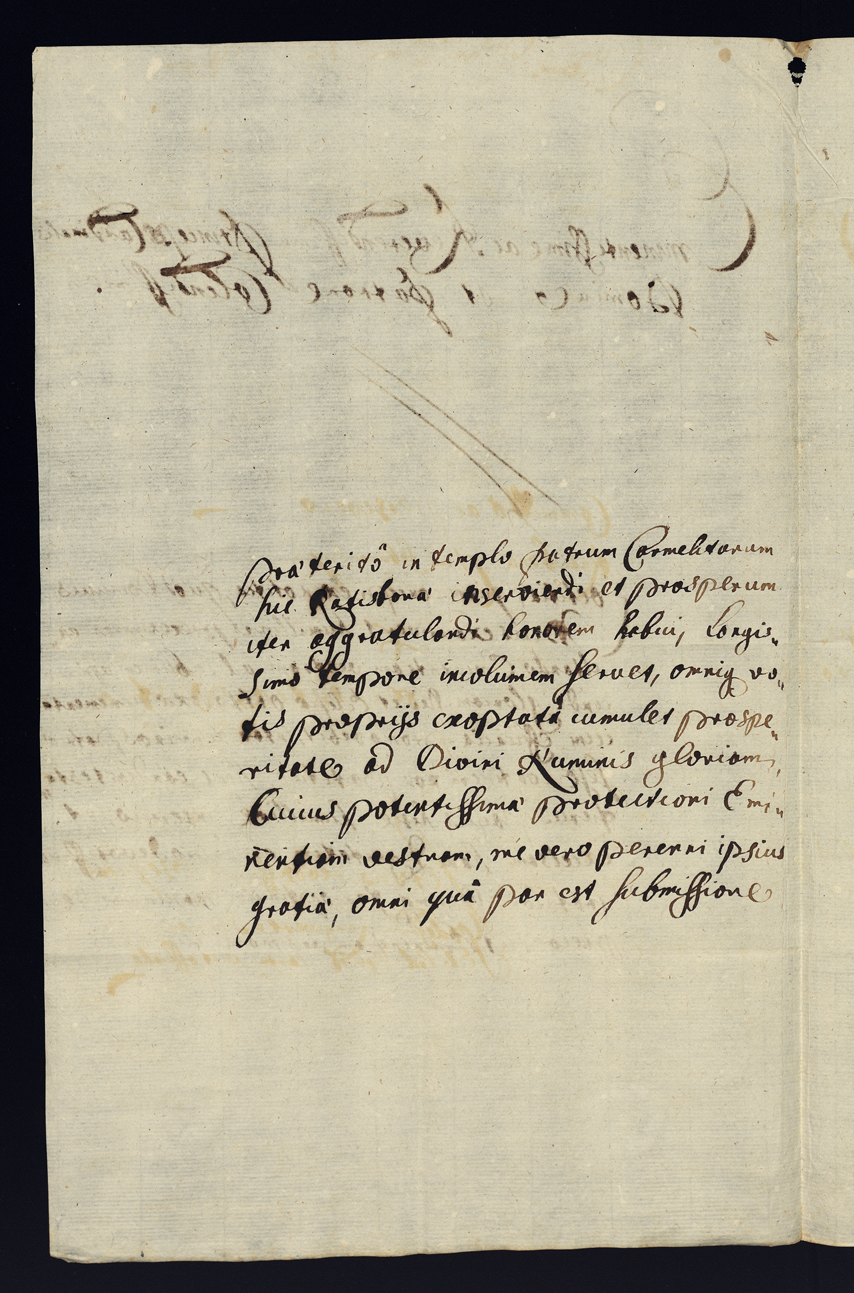 præteritô in templo patrum Carmelitarum
hic Ratisbonæ inserviendi et prosperum
iter aggratulandi honorem habui, Longis„
simô tempore incolumem servet, omniq vo„
tis proprijs exoptatâ cumulet prospe„
ritate ad Divini Numinis gloriam,
Cuius potentissimæ protectioni Emi„
nentiam vestram, me vero perenni ipsius
gratiæ, omni quâ par est submissione